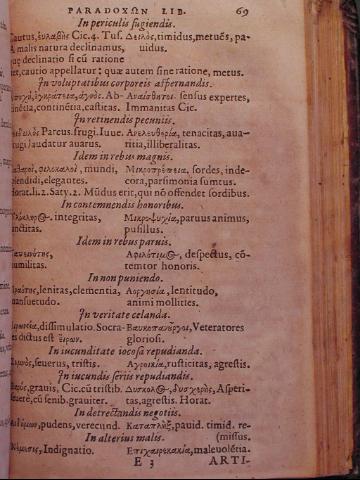 PARADOXΩN LIB. 69
In periculis fugiendis.
Cautus, Cic. 4. Tus. Δειλὸς, timidus, metuẽs, pa-
malis natura declinamus, uidus.
declinatio si cũ ratione
cautio appellatur: quæ autem sine ratione, metus.
In uoluptatibus corporeis aspernandis.
Ab- Αναίσθητοι sensus expertes,
continẽtia, castitas. Immanitas Cic.
In retinendis pecuniis.
Parcus. frugi. Iuue. Ανελευθερία, tenacitas, aua-
laudatur auarus. titia, illiberalitas.
Idem in rebus magnis.
mundi, Μικροπρέπεια, sordes, inde-
elegantes. cora, parsimonia sumtus.
Horat. li. 2. Saty. 2. Mũdus erit, qui nõ offendet sordibus.
In contemnendis honoribus.
integritas, Μικροψυχία, paruus animus,
pusillus.
Idem in rebus paruis.
despectus, cõ-
temtor honoris.
In non puniendo.
lenitas, clementia, Αοργησία, lentitudo,
mansuetudo. animi mollities.
In ueritate celanda.
dissimulatio. Socra- Βαυκοπανοῦργοι, Veteratores
dictus est εἴρων. gloriosi.
In iucunditate iocosa repudianda.
seuerus, tristis. Αγροικία, rusticitas, agrestis.
In iucundis seriis repudiandis.
grauis, Cic. cũ tristib. Δύσκολος, δυσχερὸς, Asperi-
seuerè, cũ senib. grauiter. tas, agrestis. Horat.
In detrectandis negotiis.
pudens, verecund. Καταπλὴξ, pauid. timid. re-
In alterius malis. (missus.
Indignatio. Επιχαιρεκακία, maleuolẽtia.
E 3 ARTI-